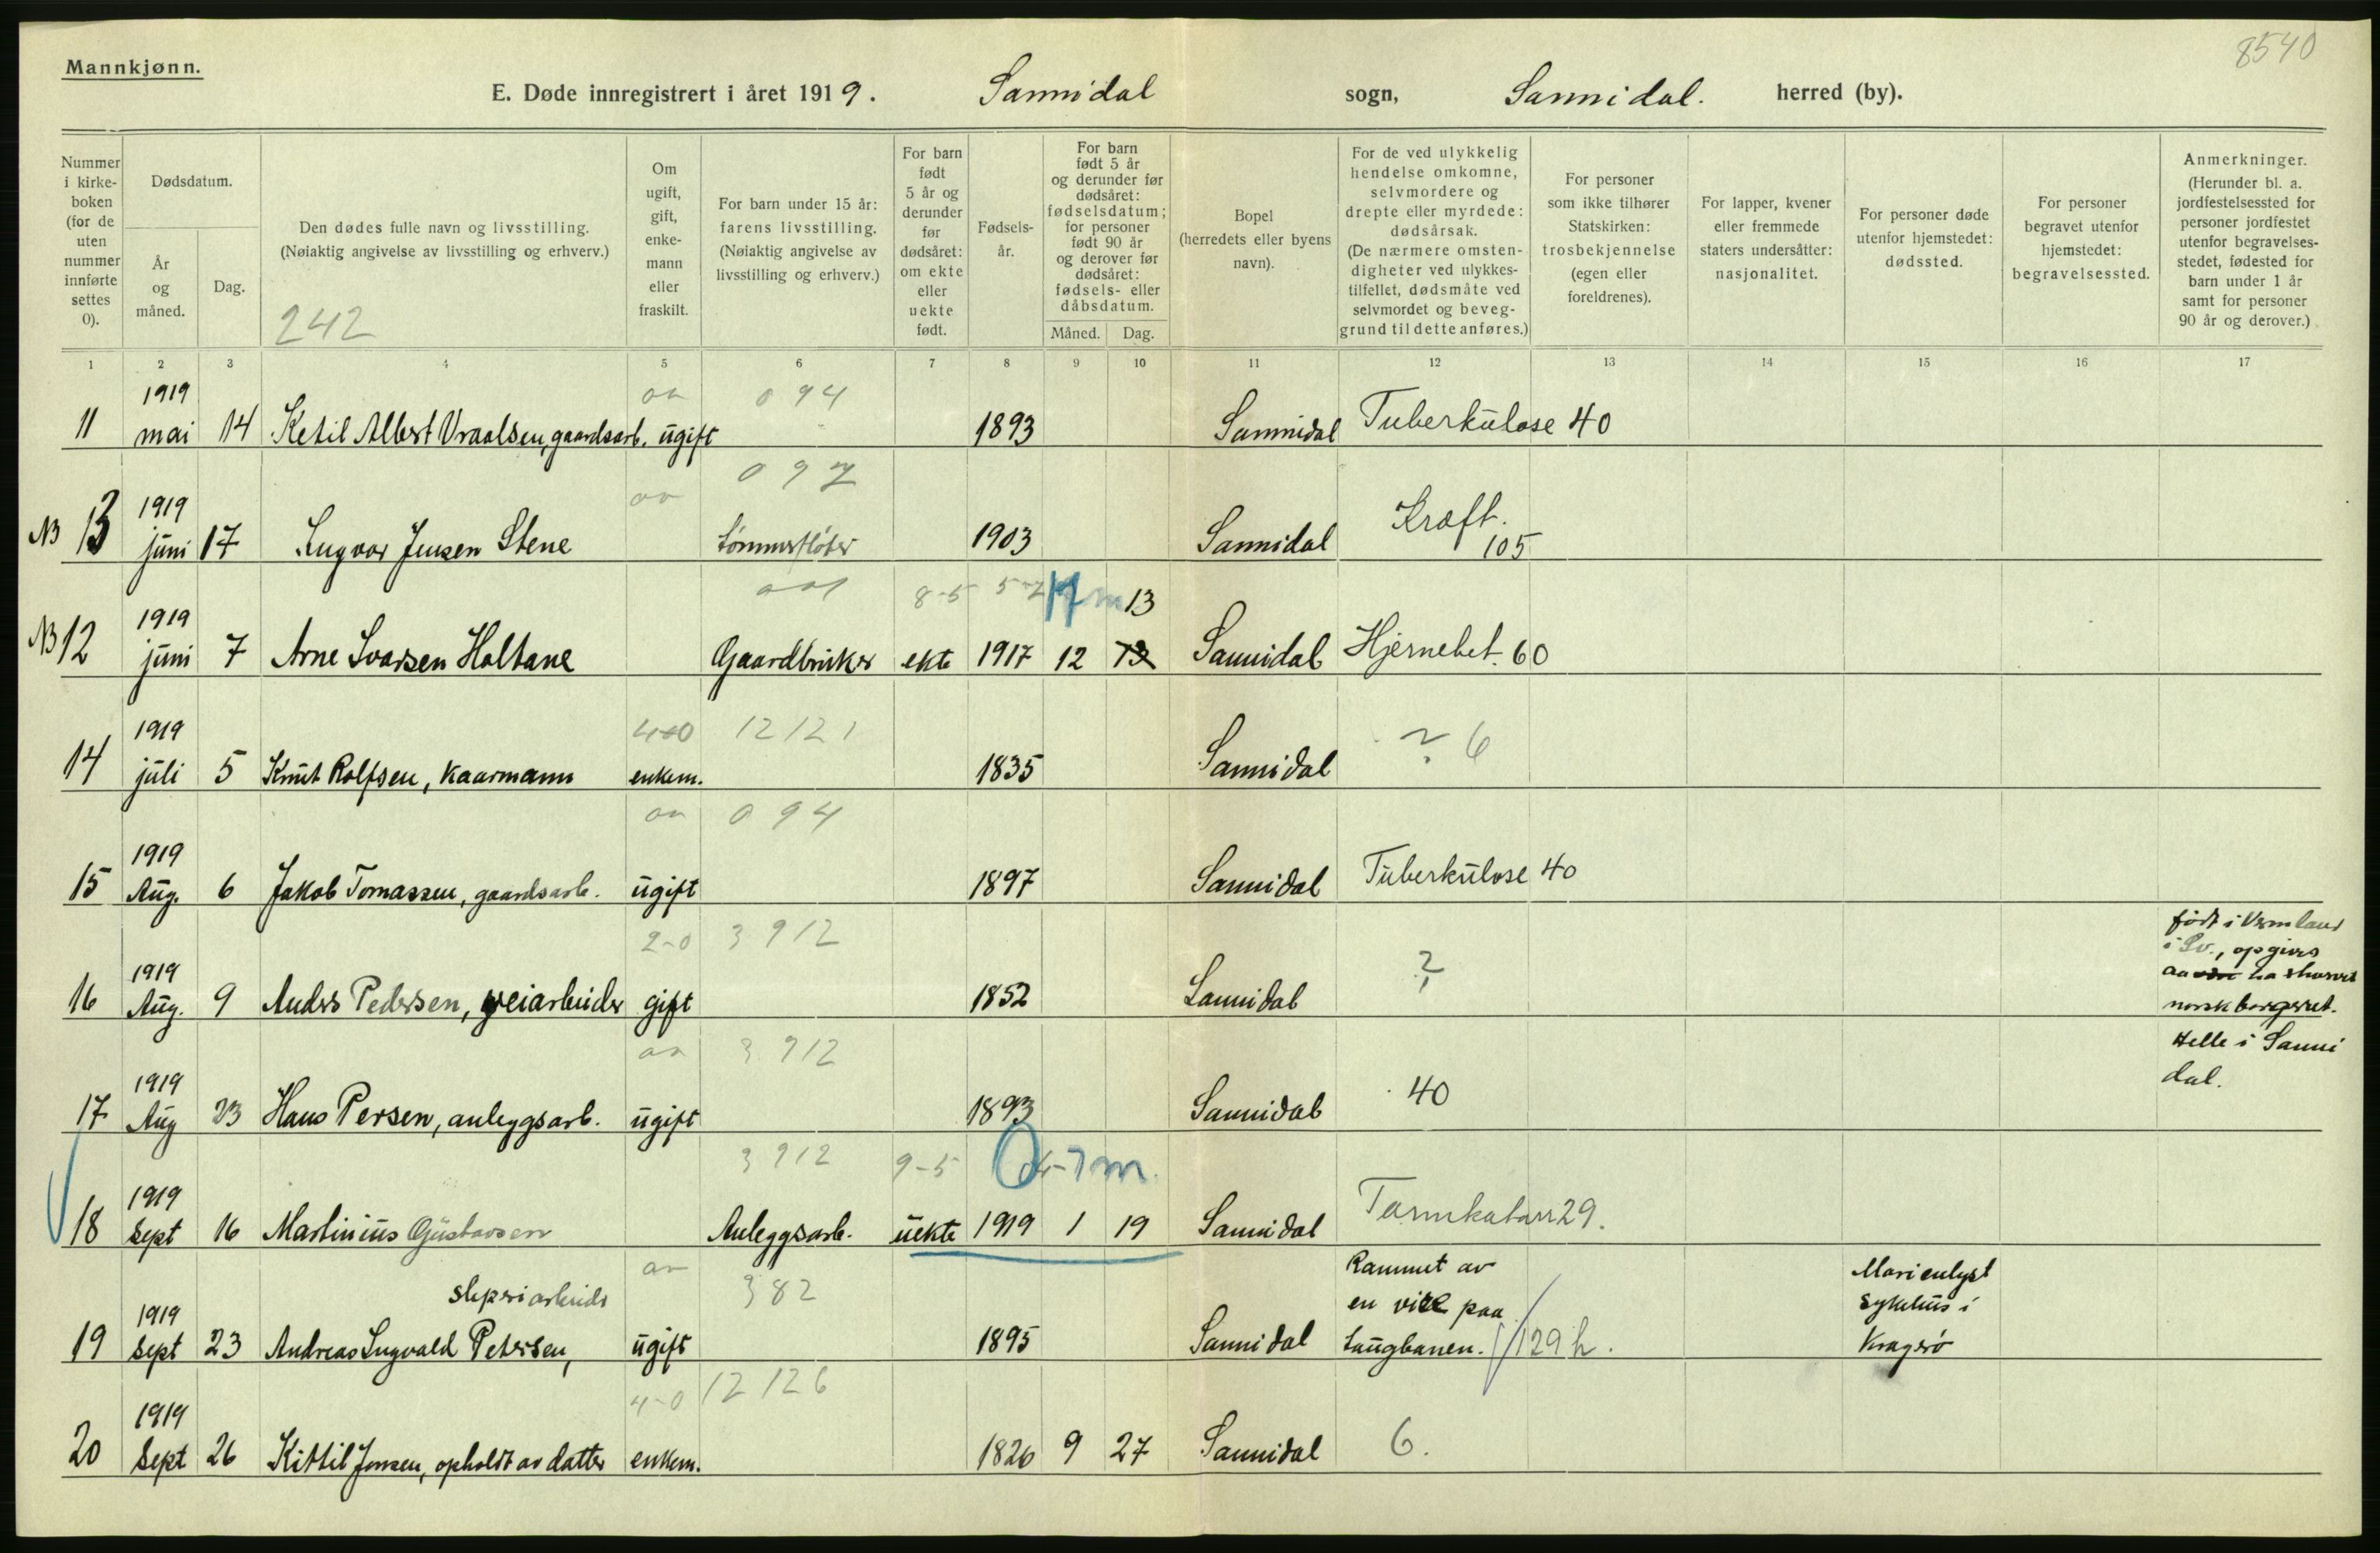 8540
Mannkjønn.
E. Døde innregistrert i året 1919. Sannidal sogn, Sannidal. herred (by).
Nummer i kirke- boken (for de uten nummer innførte settes 0).
Dødsdatum.
År og måned.
Dag.
Den dødes fulle navn og livsstilling.
(Nøiaktig angivelse av livsstilling og erhverv.)
242
Om ugift, gift, enke- mann eller fraskilt.
For barn under 15 år: farens livsstilling. (Nøiaktig angivelse av livsstilling og erhverv.)
For barn født 5 år og derunder før dødsåret: om ekte eller uekte født.
Fødsels- år.
For barn født 5 år og derunder før dødsåret: fødselsdatum; for personer født 90 år og derover før dødsåret: fødsels- eller dåbsdatum.
Måned. Dag.
Bopel (herredets eller byens navn).
For de ved ulykkelig hendelse omkomne, selvmordere og drepte eller myrdede: dødsårsak. (De nærmere omsten- digheter ved ulykkes- tilfellet, dødsmåte ved selvmordet og beveg- grund til dette anføres.)
For personer som ikke tilhører Statskirken: trosbekjennelse (egen eller foreldrenes).
For lapper, kvener eller fremmede staters undersåtter: nasjonalitet.
For personer døde utenfor hjemstedet: dødssted.
For personer begravet utenfor hjemstedet: begravelsessted.
Anmerkninger. (Herunder bl. a. jordfestelsessted for personer jordfestet utenfor begravelses- stedet, fødested for barn under 1 år samt for personer 90 år og derover.)
1 2 3 4 5 6 7 8 9 10 11 12 13 14 15 16 17
1919 094
11 mai 14 Ketil Albert Vraalsen, gaardsarb. ugift 1893 Sannidal Tuberkulose 40
1919 097
NB 13 juni 17 Ingvar Jensen Stene Tømmerfløter 1903 Sannidal Kræft. 105
1919 8-5 17 m 13
NB 12 juni 7 Arne Ivarsen Holtane Gaardbruker ekte 1917 12 13 Sannidal Hjernebet. 60
1919 4-0 12121
14 juli 5 Knut Rolfsen, kaarmann enkem. 1835 Sannidal ? 6
1919 094
15 Aug. 6 Jakob Tomassen, gaardsarb. ugift 1897 Sannidal Tuberkulose 40
1919 2-0 3912
16 Aug. 9 Anders Pedersen, veiarbeider gift 1852 Sannidal ?
født i Vermland
i Sv., opgives
aa ha erhvervet
norsk borgerret.
1919 3912
17 Aug 23 Hans Persen, anleggsarb. ugift 1893 Sannidal 40
Helle i Sanni
dal.
1919 3912 9-5 7 m.
18 Sept 16 Martinius Gustavsen Anleggsarb. uekte 1919 1 19 Sannidal Tarmkatarr 29.
1919 sliperiarbeider 382
19 Sept 23 Andreas Ingvald Petersen, ugift 1895 Sannidal
Rammet av
en vire paa
taugbanen. 129 h.
Marienlyst
sykehus i
Kragerø
1919 4-0 12126
20 Sept 26 Kittil Jonsen, opholdt av datter enkem. 1826 9 27 Sannidal 6.